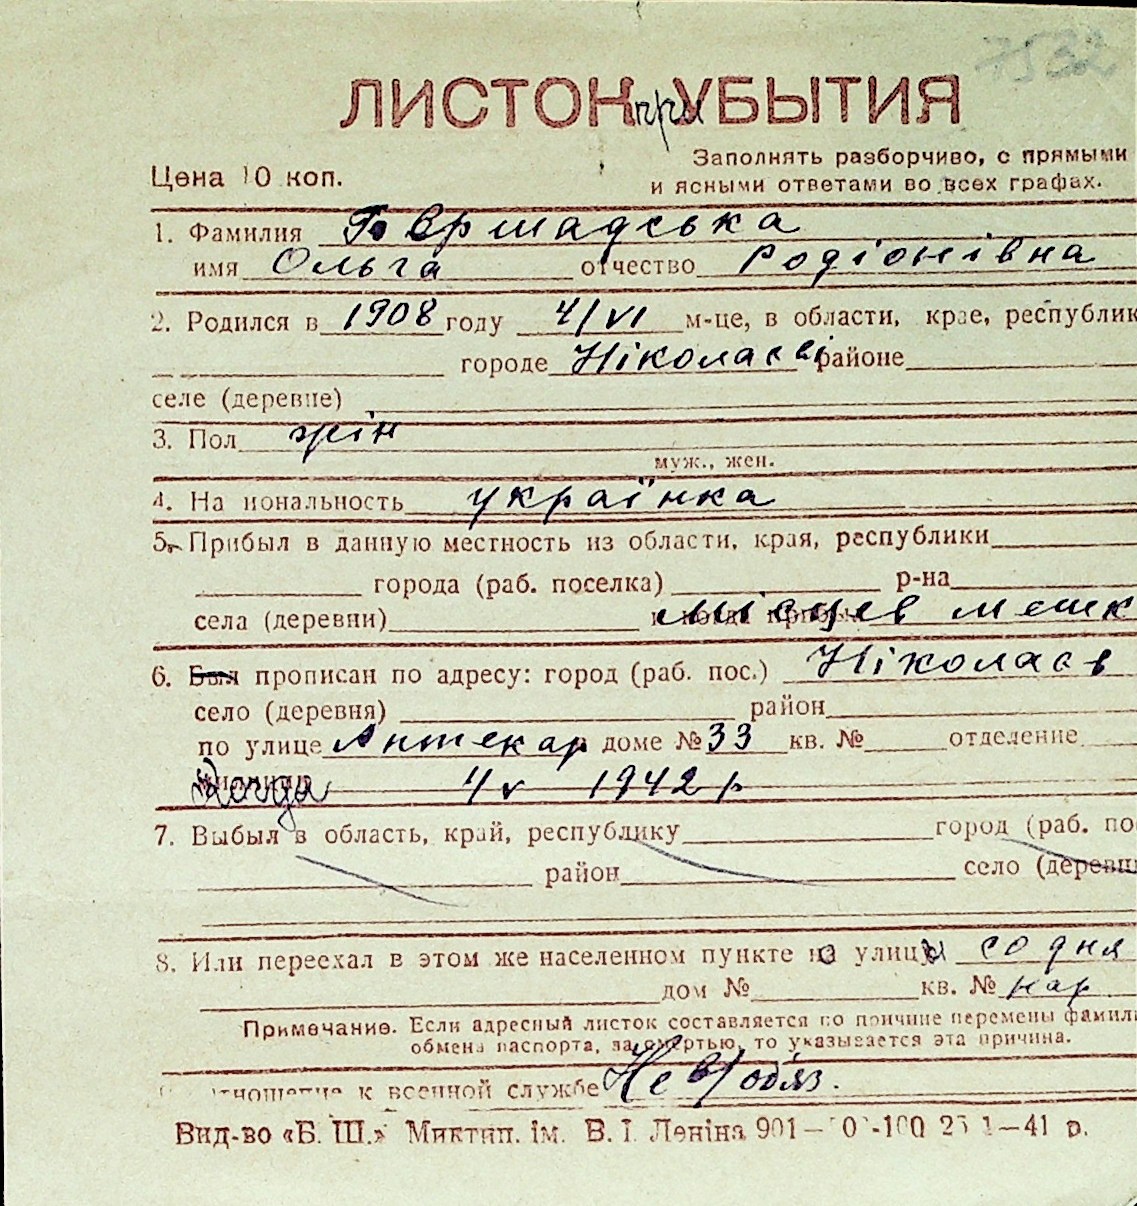 7532
ЛИСТОК при УБЫТИЯ
Цена 10 коп.
Заполнять разборчиво, с прямыми
и ясными ответами во всех графах.
1. Фамилия Бершадська
имя Ольга отчество Родіонівна
2. Родился в 1908 году 4/VI м-це, в области, крае, республик
городе Ніколаєві районе
селе (деревне)
3. Пол жін
муж., жен.
4. Национальность українка
5. Прибыл в данную местность из области, края, республики
города (раб. поселка) р-на
села (деревни) місцев мешк
6. Был прописан по адресу: город (раб. пос.) Ніколаєв
село (деревня) район
по улице Аптекар доме № 33 кв. № отделение
4 V 1942 р
7. Выбыл в область, край, республику город (раб. по
район село (деревн
8. Или переехал в этом же населенном пункте на улицу со дня
дом № кв. № нар
Примечание. Если адресный листок составляется по причине перемены фамил
обмена паспорта, за смертью, то указывается эта причина.
отношение к военной службе Не в/обяз.
Вид-во «Б. Ш.» Миктип. ім. В. І. Леніна 901— —41 р.